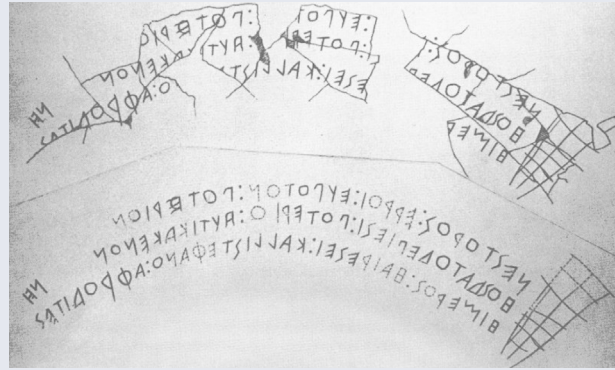 ΝΕΣΤΟΡΟΣ: :ΕΥΠΟΙ :ΠΟΤΕΡΙΟΝ
ΗΟΣΔΑΤΟΔΕΠ :ΠΟΤΕΡ :ΑΥΤΙΚΑΚΕΝΟΝ
ΗΙΜΕΡ ΕΣΕΙ:ΚΑΛΛΙΣΤ Ο:ΑΦΡΟΔΙΤΕΣ
ΝΕΣΤΟΡΟΣ:ΕΡΡΟΙ:ΕΥΠΟΤΟΝ:ΠΟΤΕΡΙΟΝ
ΗΟΣΔΑΤΟΔΕΠΙΕΣΙ:ΠΟΤΕΡΙΟ:ΑΥΤΙΚΑΚΕΝΟΝ
ΗΙΜΕΡΟΣ:ΗΑΙΡΕΣΕΙ:ΚΑΛΛΙΣΤΕΦΑΝΟ:ΑΦΡΟΔΙΤΕΣ